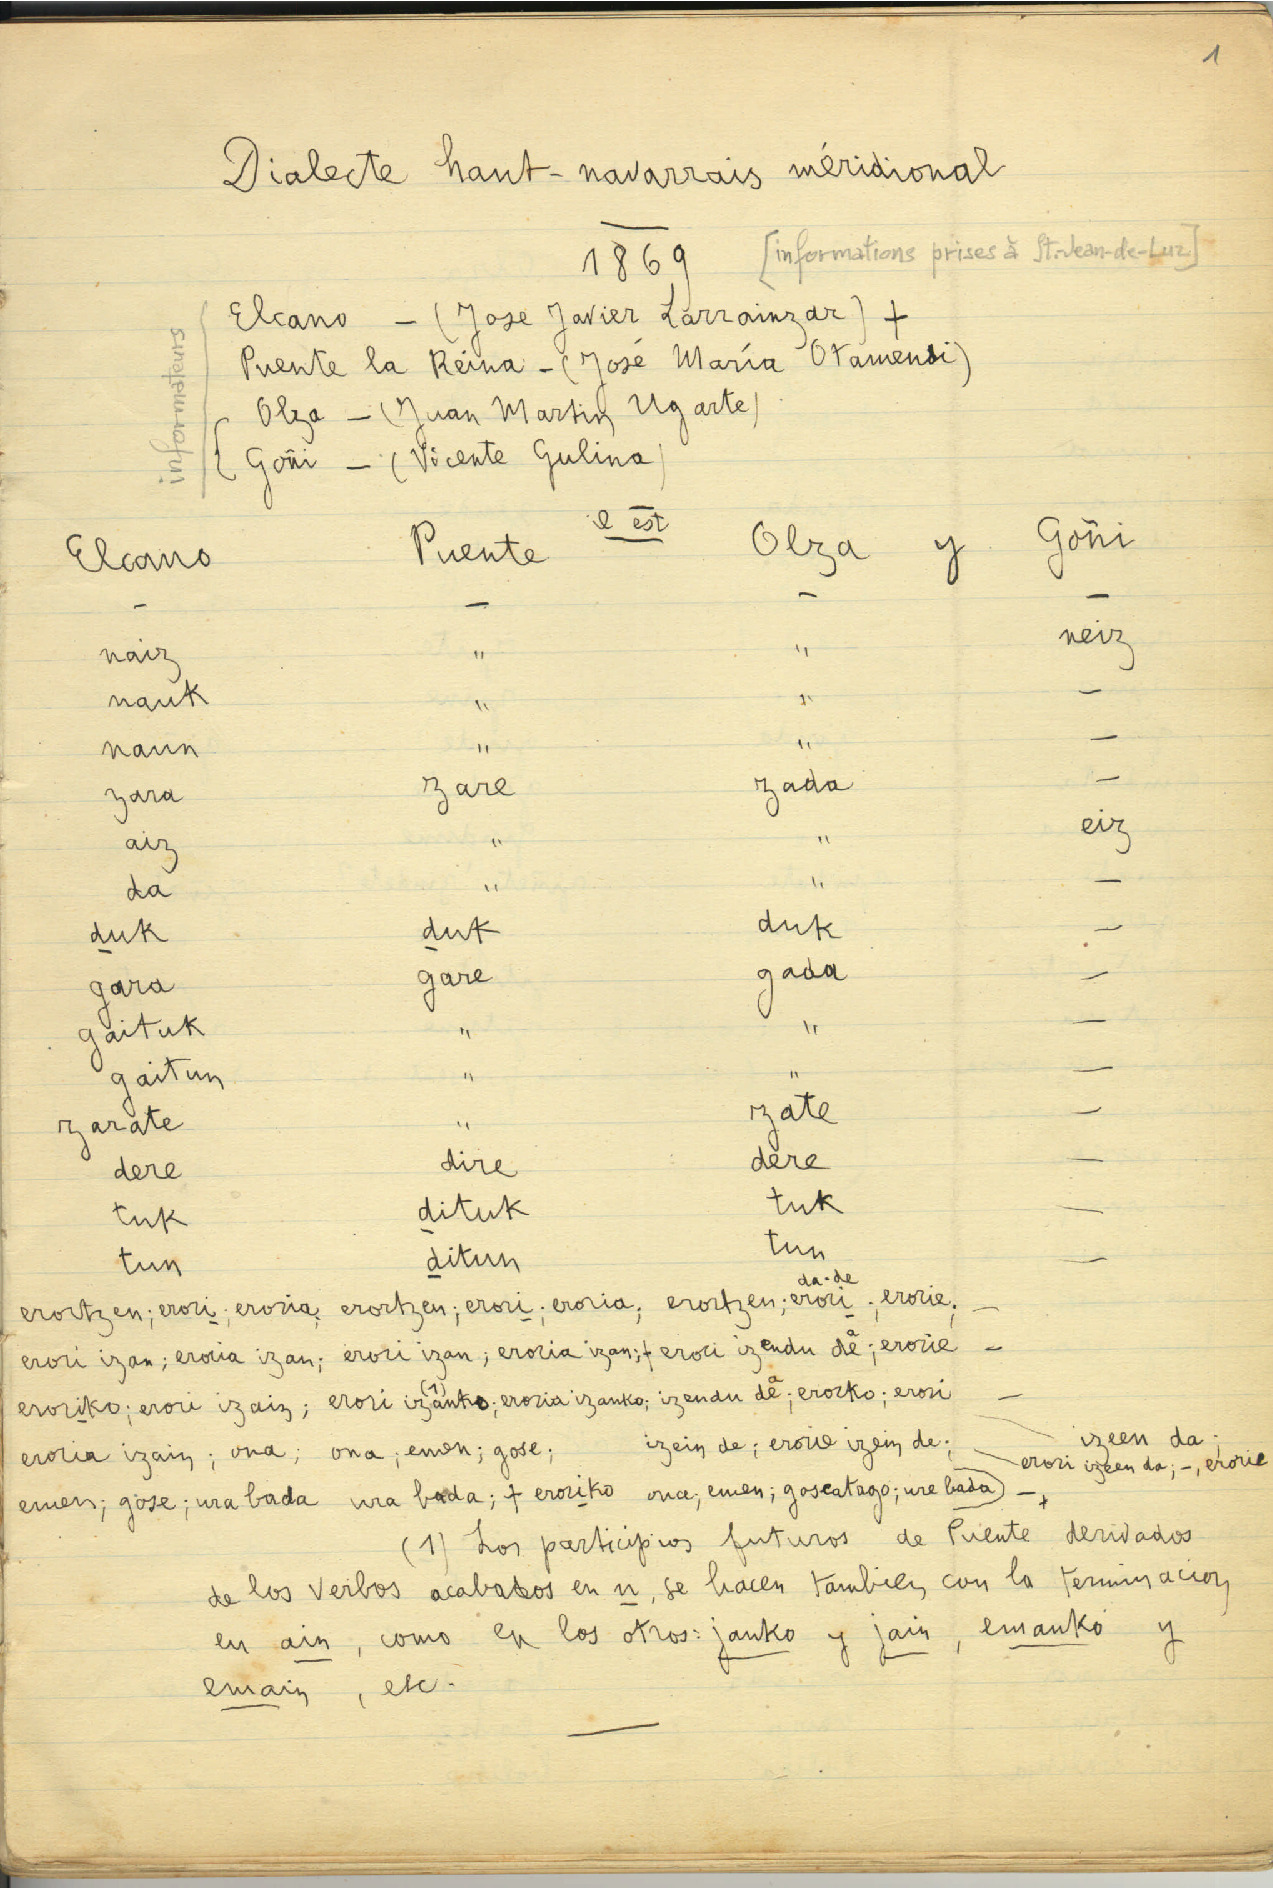 1
Dialecte haut-navarrais méridional
1869 [informations prises à St.-Jean-de-Luz]
informateurs
Elcano - (Jose Javier Larrainzar) +
Puente la Reina - (José María Otamendi)
Olza - (Juan Martin Ugarte)
Goñi - (Vicente Gulina)
il est
Elcano Puente Olza y Goñi
- - - -
naiz " " neiz
nauk " " -
naun " " -
zara zare zada -
aiz " " eiz
da " " -
duk duk duk -
gara gare gada -
gaituk " " -
gaitun " " -
zarate " zate -
dere dire dere -
tuk dituk tuk -
tun ditun tun -
da-de
erortzen; erori; eroria; erortzen; erori; eroria; erortzen; erori; erorie; -
erori izan; eroria izan; erori izan; eroria izan; + erori izendu de a; erorie -
eroriko; erori izain; erori izanko (1); eroria izanko; izendu de a; erorko; erori -
eroria izain; ona; ona; emen; gose; izein de; erorie izein de; izeen da;
erori izeen da; -, erorie
emen; gose; ura bada ura bada; + eroriko ona; emen; goseatago; ure bada -+
(1) Los participios futuros de Puente derivados
de los verbos acabados en n, se hacen tambien con la terminacion
en ain, como en los otros: janko y jain, emanko y
emain, etc.